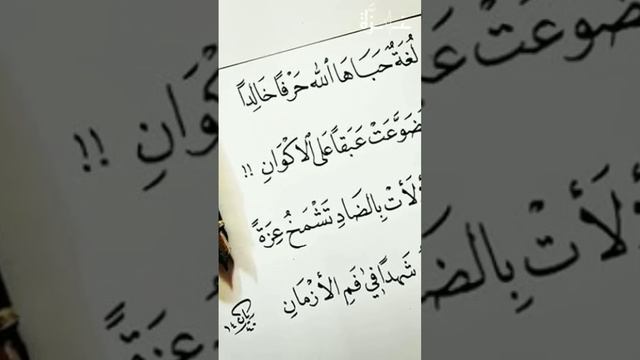 لُغَةٌ حَبَاهَا ٱللهُ حَرْفاً خَالِداً
ضَوَّعَتْ عَبَقاً عَلَى ٱلاَكْوَانِ !!
لَأَتْ بِالضَادِ تَشْمَخُ عِزَةً
شَهداً فِي فَمِ الأَزْمَانِ